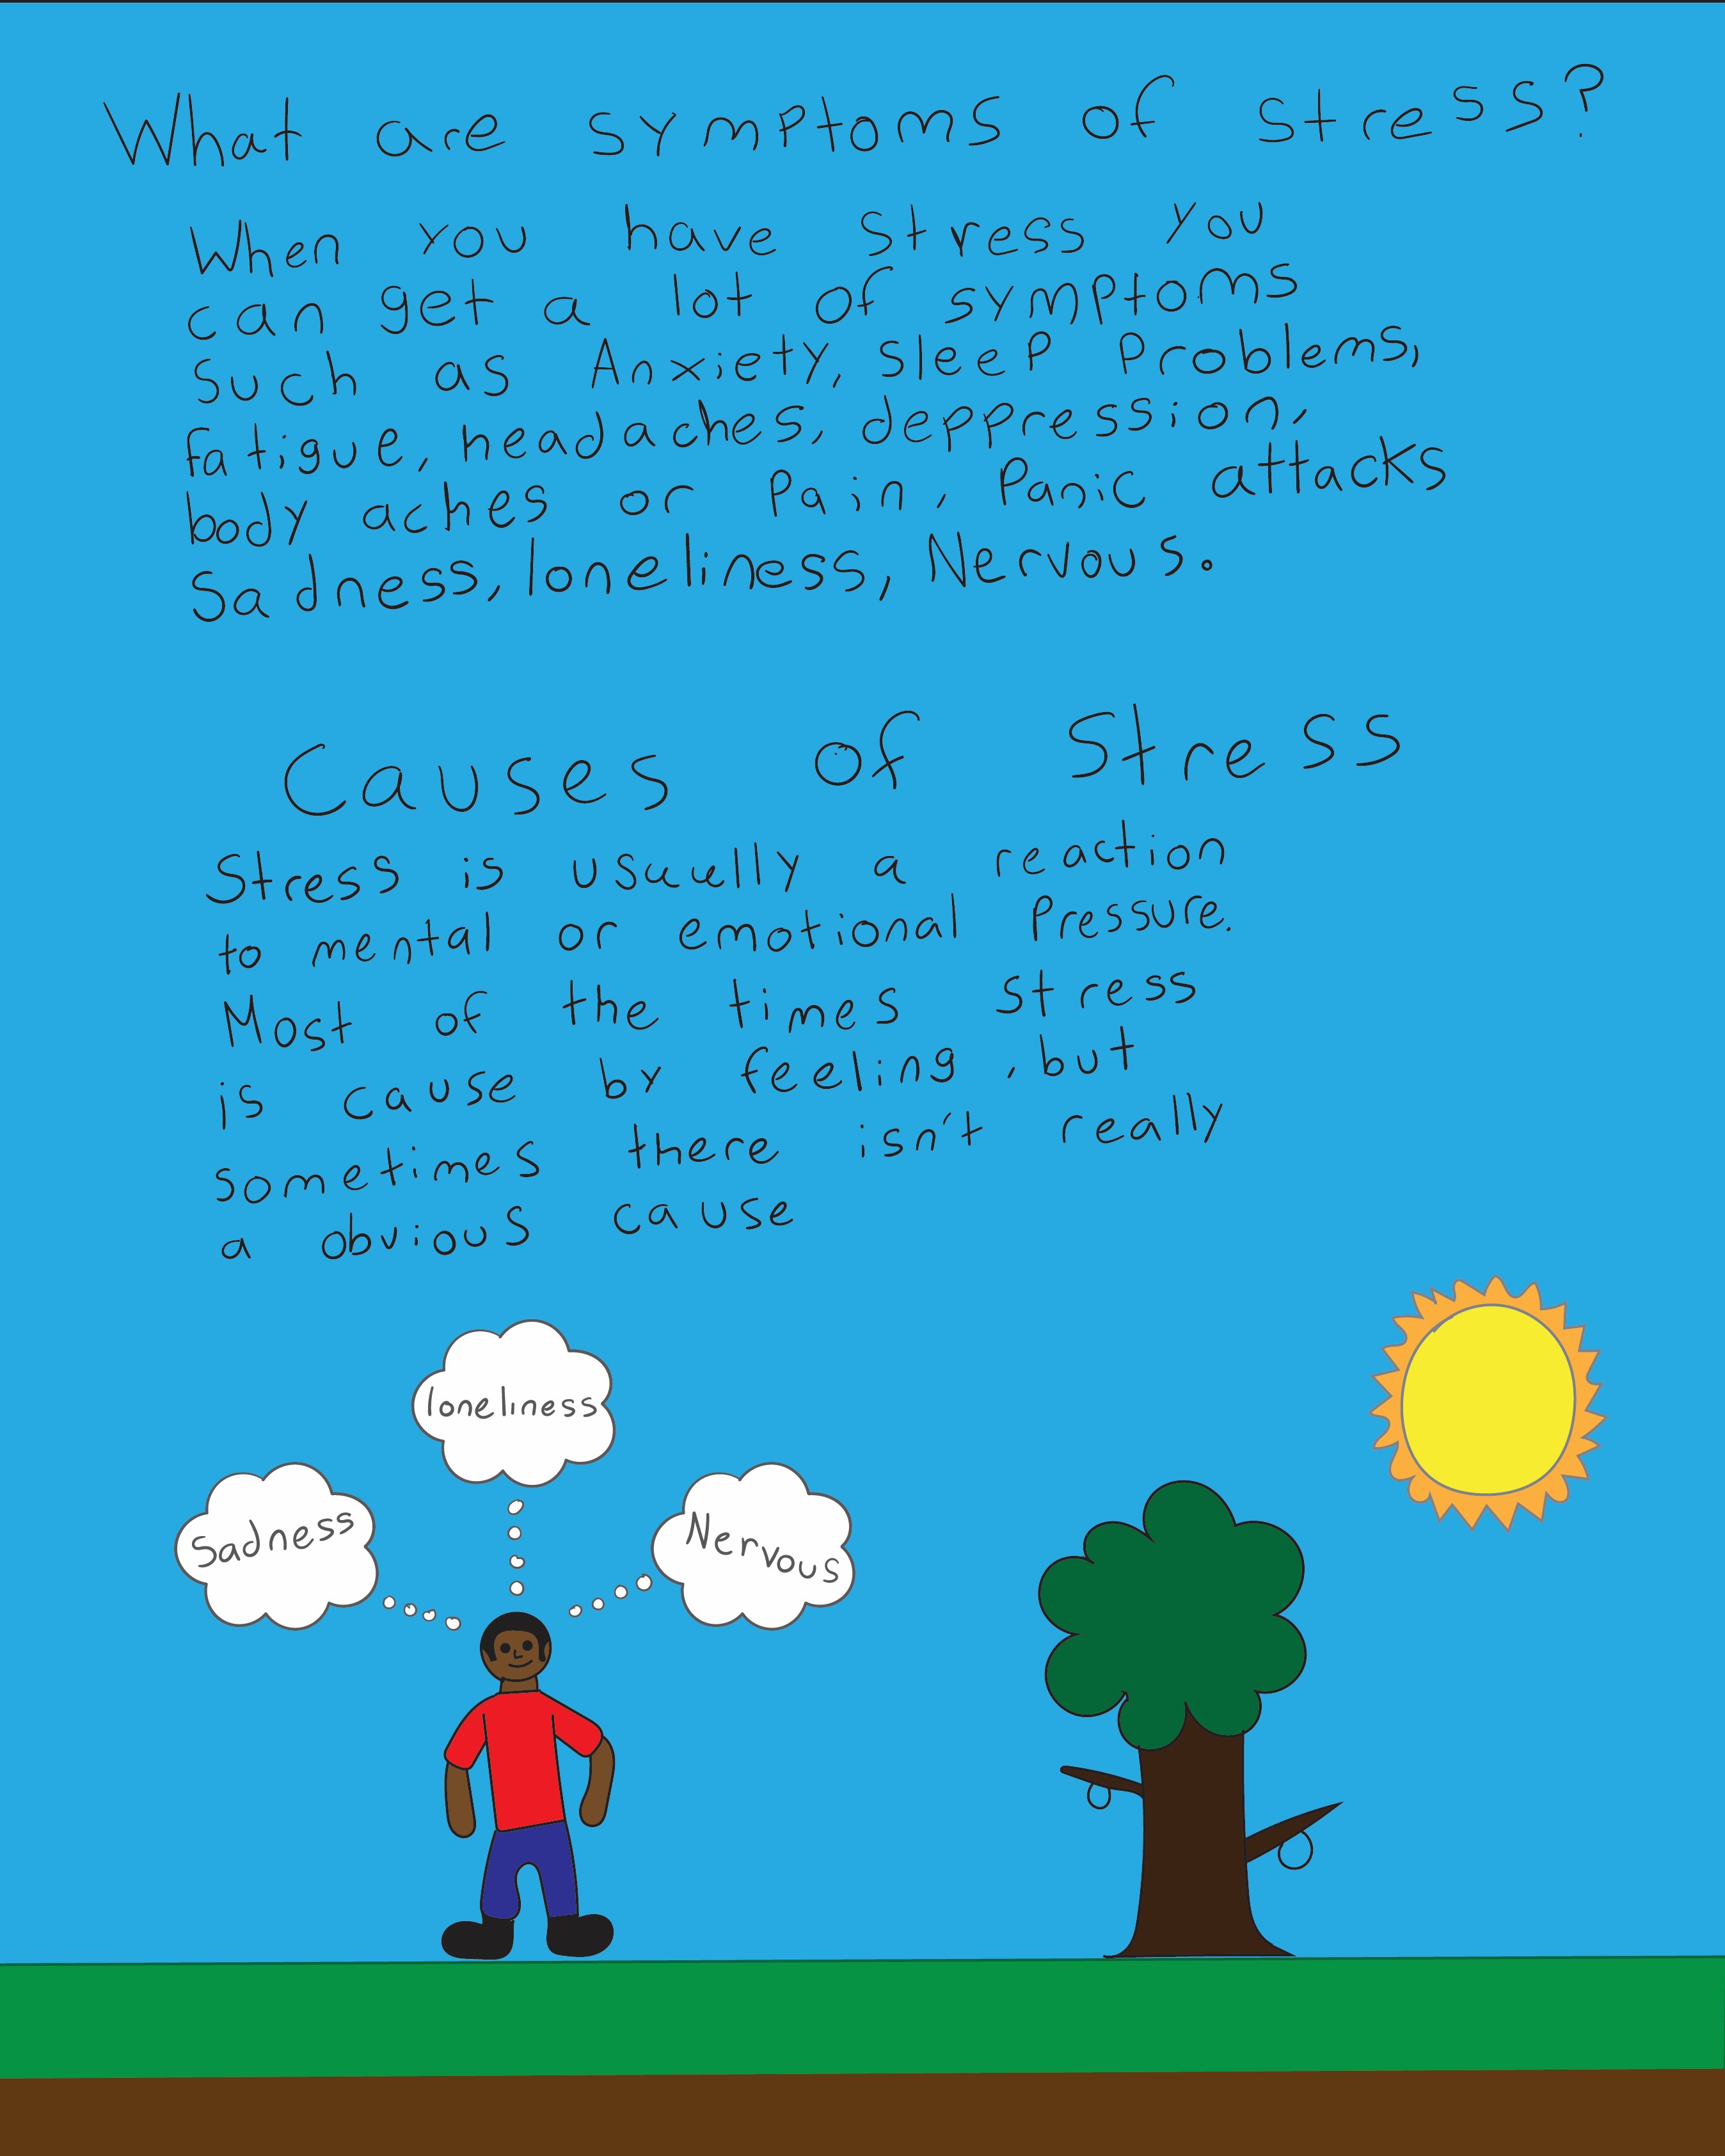 What are symptoms of stress?
When you have stress you
can get a lot of symptoms
such as Anxiety, sleep problems,
fatigue, headaches, deppression,
body aches or pain, panic attacks
sadness, loneliness, Nervous.
Causes of Stress
Stress is usuelly a reaction
to mental or emotional pressure.
Most of the times stress
is cause by feeling, but
sometimes there isn't really
a obvious cause
loneliness
Sadness
Nervous